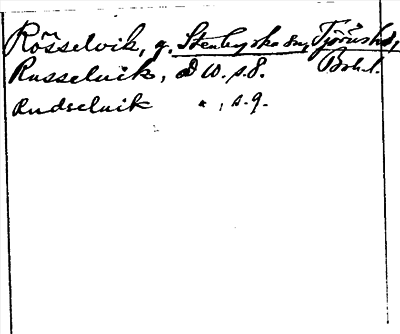 Rösselvik, g. Stenkyrka sn, Tjörns hd,
Bohl.
Russeluik, D W. s. 8.
Rudseluik " , s. 9.